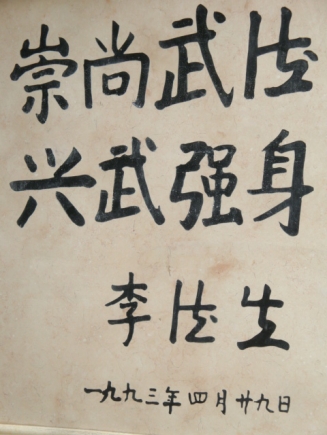 崇尚武德
兴武强身
李德生
一九九三年四月廿九日